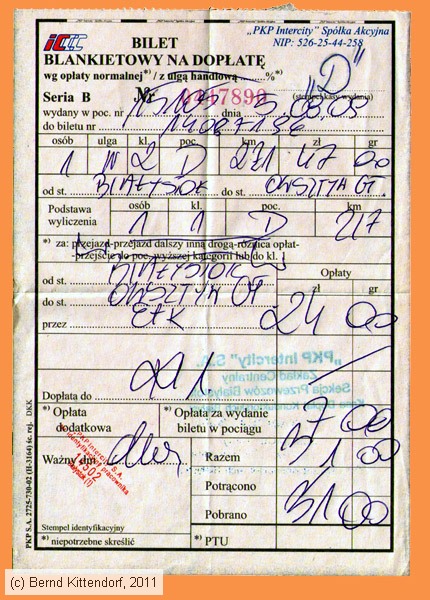 „PKP Intercity” Spółka Akcyjna
NIP: 526-25-44-258
BILET
BLANKIETOWY NA DOPŁATĘ
wg opłaty normalnej*) / z ulgą handlową %*)
„D”
Seria B Nr 0447890 (stempel kasy wydania)
wydany w poc. nr dnia 5.08.05
do biletu nr
osób ulga kl. poc. km zł gr
1 N 2 D 271 47 00
od st. BIAŁYSTOK do st. OLSZTYN GŁ
Podstawa wyliczenia osób kl. poc. km
1 1 D 217
*) za: przejazd-przejazd dalszy inną drogą-różnica opłat-
-przejście do poc. wyższej kategorii lub do kl.
od st. BIAŁYSTOK Opłaty
do st. OLSZTYN GŁ zł gr
przez EŁK 24 00
„PKP Intercity” S.A.
Zakład Centralny
Sekcja Przewozów Białystok
Dopłata do
*) Opłata dodatkowa *) Opłata za wydanie biletu w pociągu 7 00
Ważny dnia
Razem 31 00
Potrącono
Pobrano 31 00
PKP Intercity S.A.
Stempel identyfikacyjny
*) niepotrzebne skreślić *) PTU
PKP S.A. 2725-730-02 (H-3164) śc. rej. DKK
(c) Bernd Kittendorf, 2011